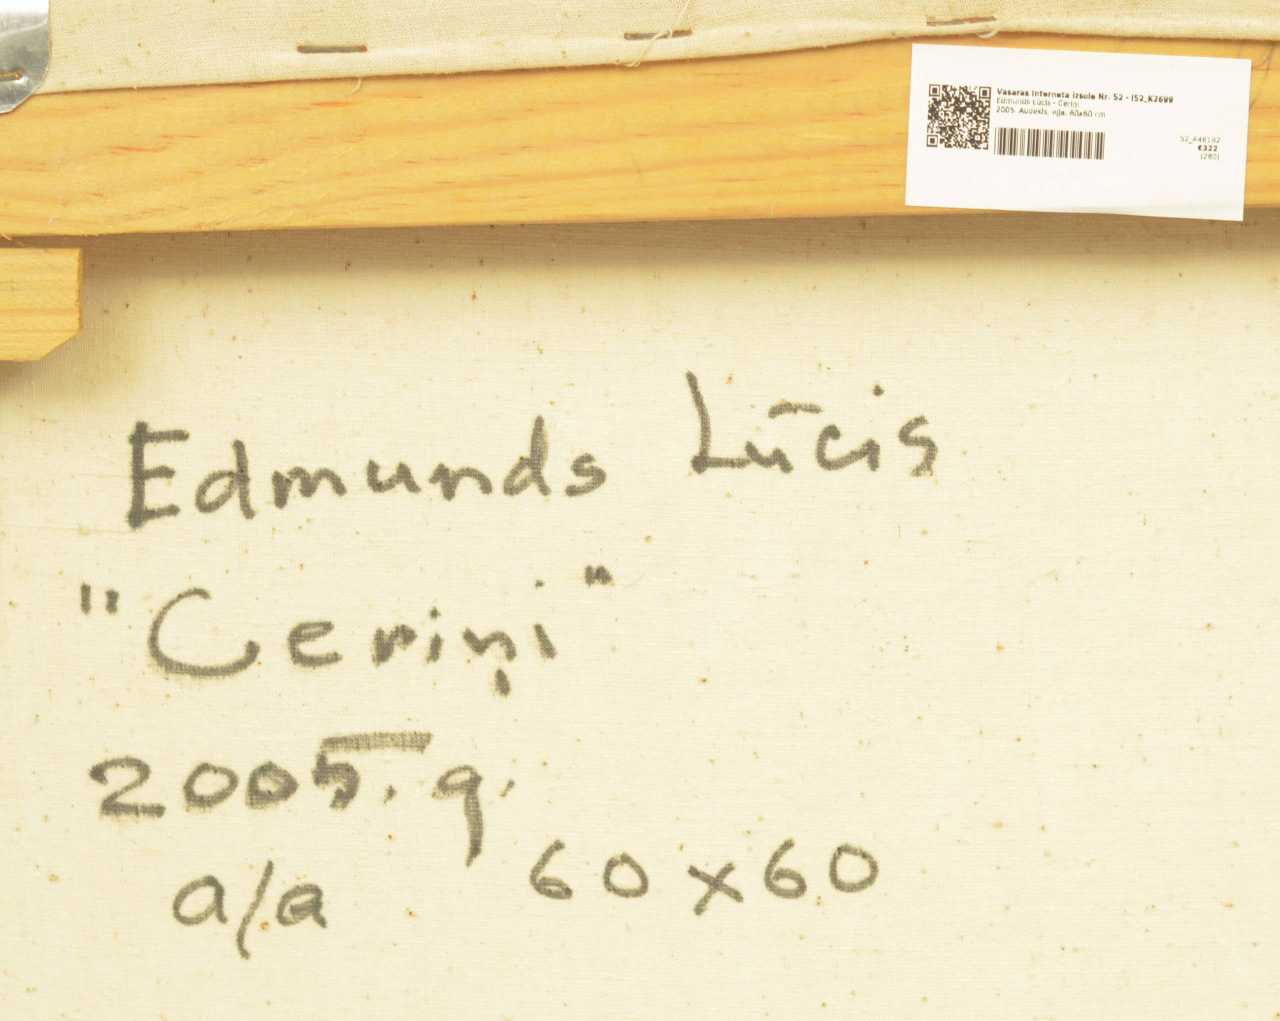 Vasaras Interneta Izsole Nr. 52 - I52_K2699
Edmunds Lūcis - Ceriņi
2005. Audekls, eļļa. 60x60 cm
€322
(280)
Edmunds Lūcis
"Ceriņi"
2005. g.
a/a 60x60